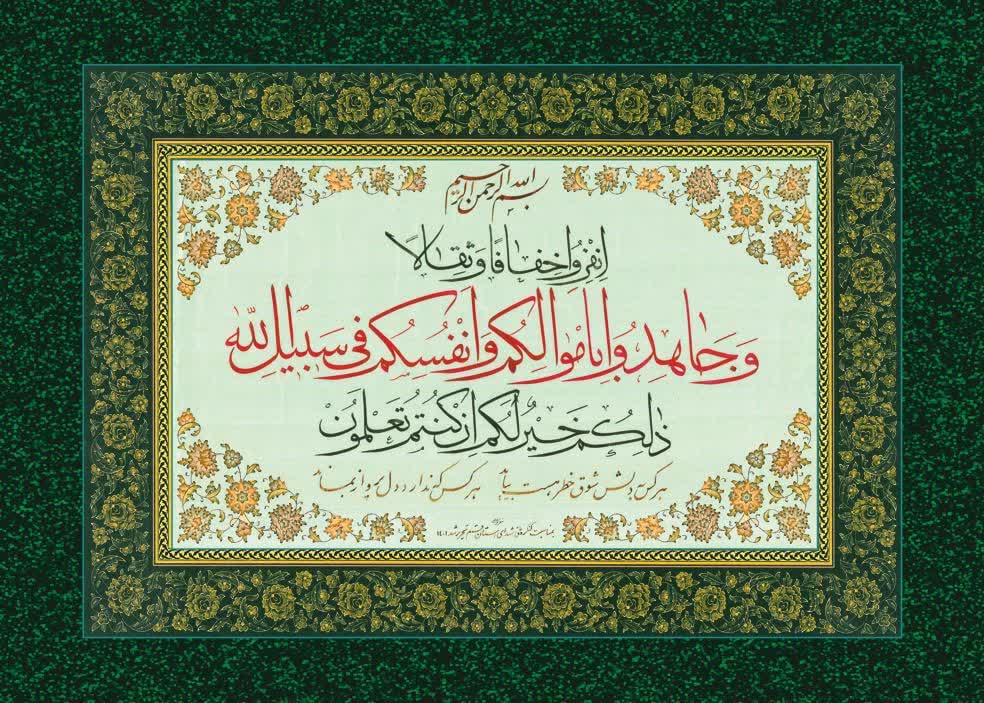 بسم الله الرحمن الرحیم
اِنْفِرُوا خِفافًا وَ ثِقالًا
وَ جاهِدُوا بِاَموالِکُم وَ اَنْفُسِکُم فی سَبیلِ اللّه
ذٰلِکُم خَیْرٌ لَکُم اِنْ کُنْتُم تَعْلَمُونَ
هر کس به دلش شوق خطر هست بیاید هر کس که ندارد دل پرواز بماند
بمناسبت کنگره ملی شهدای